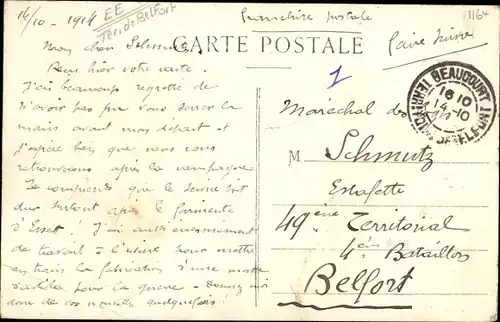 14/10 - 1914
EE
Terr. de Belfort
Franchise postale
1164
CARTE POSTALE
Faire suivre
Mon cher Schmutz,
Reçu hier votre carte.
J'ai beaucoup regretté de
n'avoir pas pu vous serrer la
main avant mon départ et
j'espère bien que nous nous
retrouverons après la campagne
Je comprends que le service soit
dur surtout après le
d'Essert. J'ai aussi énormément
de travail à l'usine pour mettre
en train la fabrication d'une
pour la guerre - Donnez moi
donc de vos nouvelles quelquefois!
1
TERRITOIRE BEAUCOURT
16 10
14 - 10
DE BELFORT
Maréchal des
M Schmutz
Estafette
49ème Territorial
4ème Bataillon
Belfort